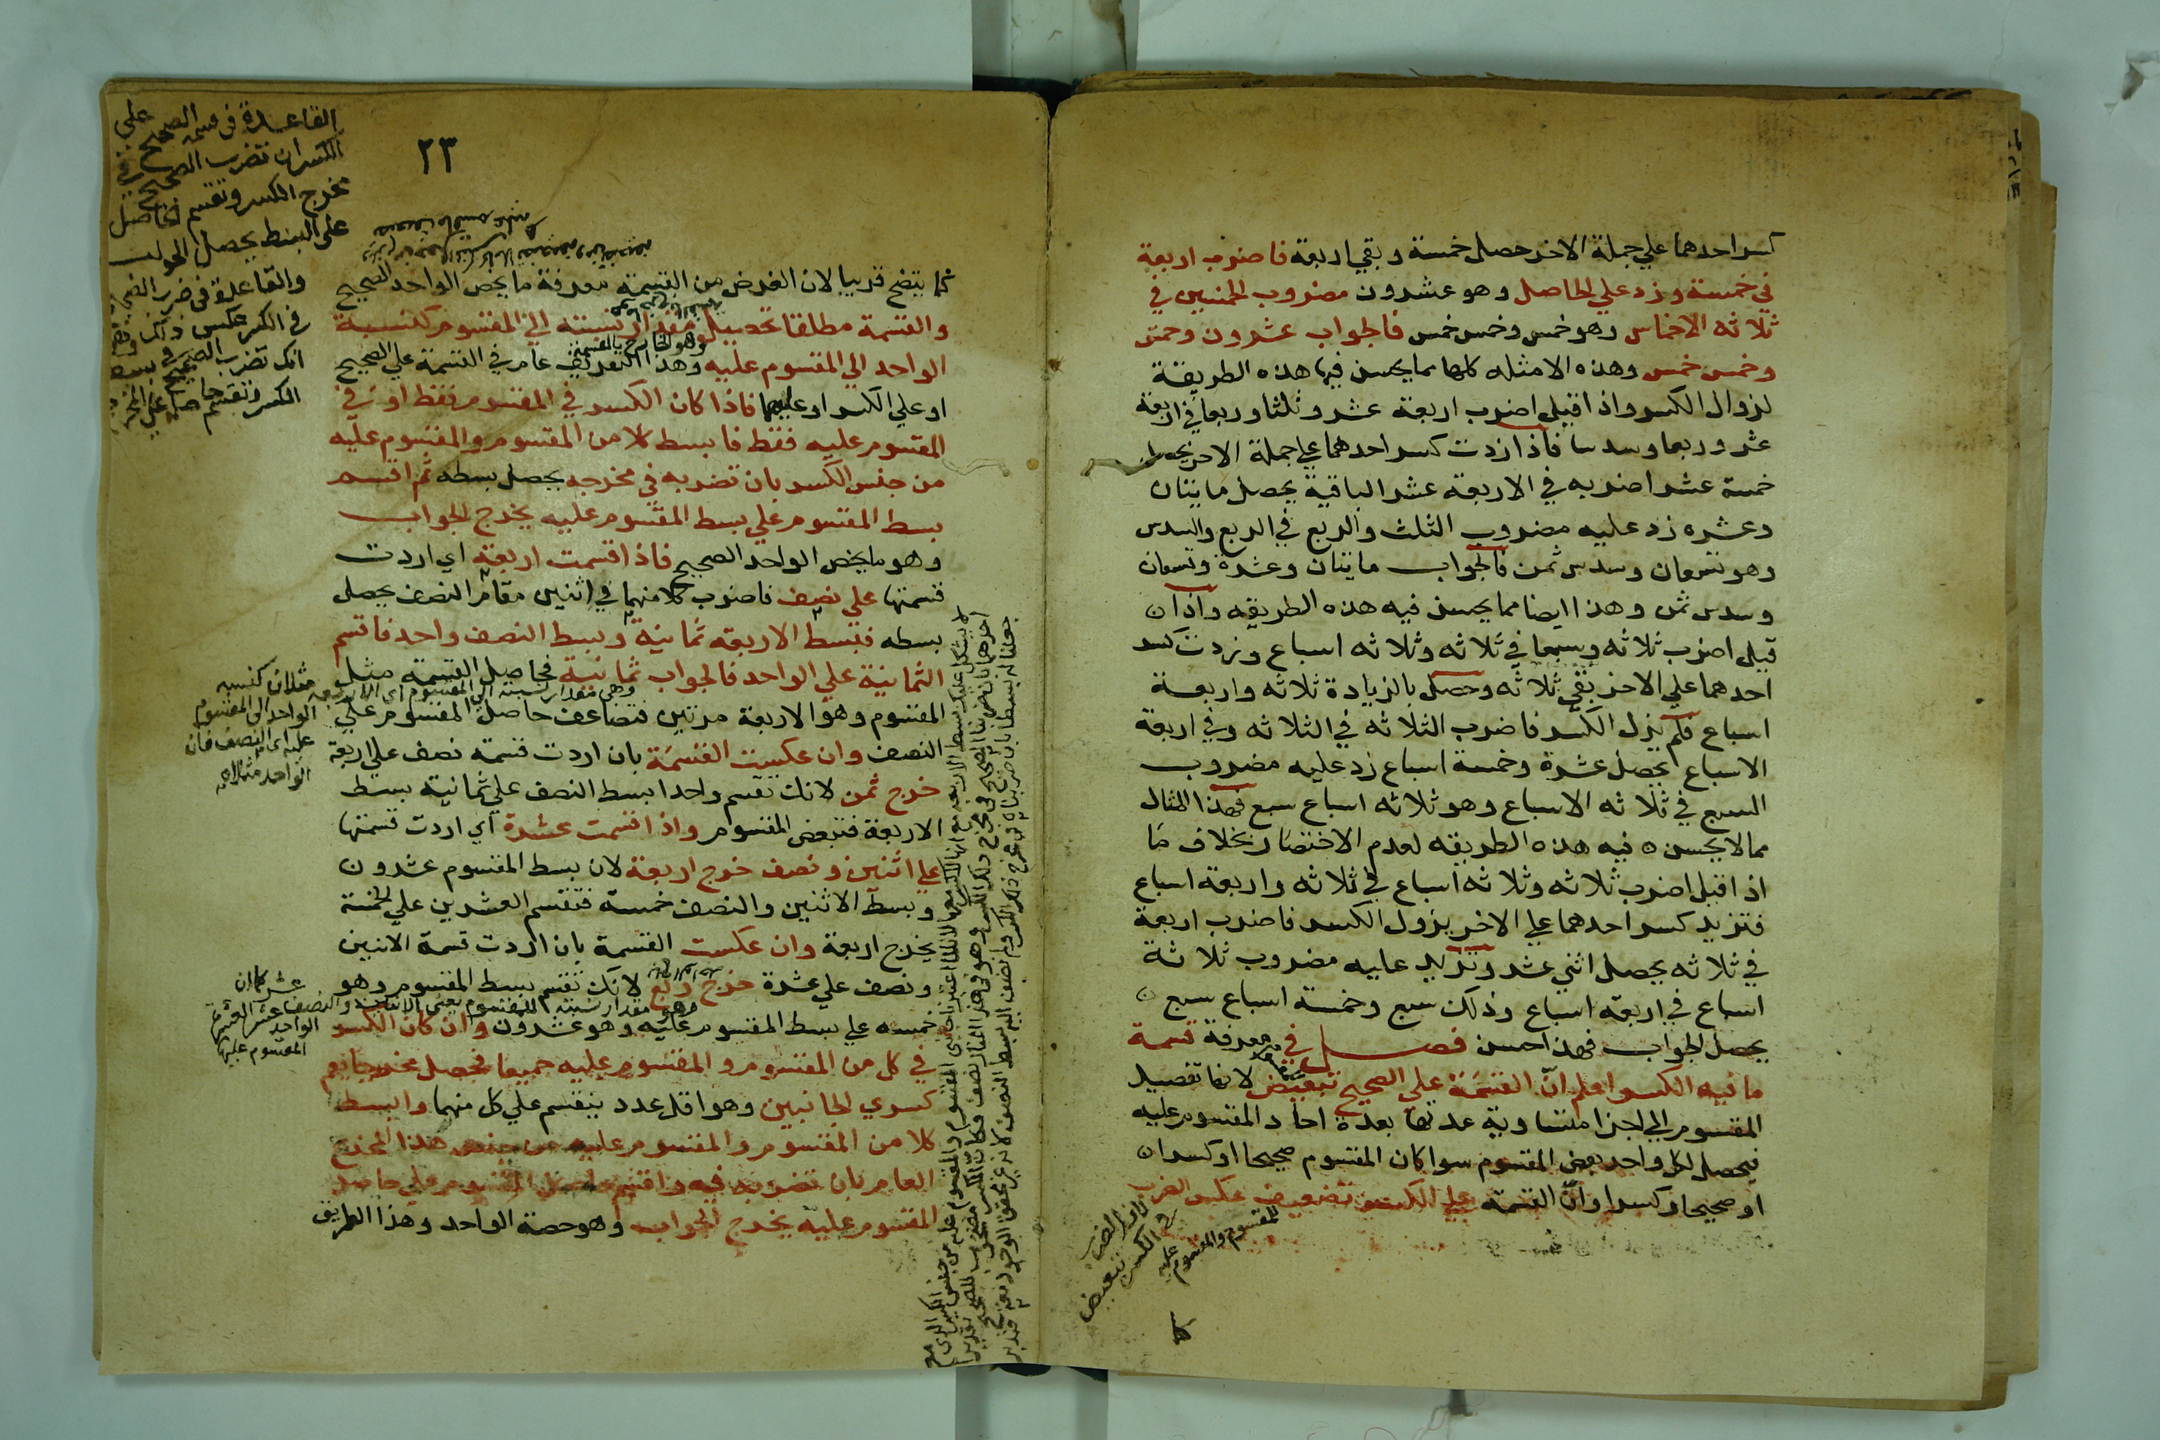 كسر احدهما علي جملة الاخر حصل خمسة وبقي اربعة فاضرب اربعة
في خمسة وزد علي الحاصل وهو عشرون مضروب الخمسين في
ثلاثه الاخماس وهو خمس وخمس خمس فالجواب عشرون وخمس
وخمس خمس وهذه الامثله كلها مما يحسن فيها هذه الطريقة
لزوال الكسر واذا قيل اضرب اربعة عشر وثلثا وربعا في اربعة
عشر وربعا وسدسا فاذا زدت كسر احدهما علي جملة الاخر يحصل
خمسة عشر اضربه في الاربعة عشر الباقية يحصل مايتان
وعشره زد عليه مضروب الثلث والربع في الربع والسدس
وهو تسعان وسدس ثمن فالجواب مايتان وعشرة وتسعان
وسدس ثمن وهذا ايضا مما يحسن فيه هذه الطريقه واذا
قيل اضرب ثلاثه وسبعا في ثلاثه وثلاثه اسباع وزدت كسر
احدهما علي الاخر بقي ثلاثه وحصل بالزيادة ثلاثه واربعة
اسباع فلم يزل الكسر فاضرب الثلاثه في الثلاثه وفي اربعة
الاسباع يحصل عشرة وخمسة اسباع زد عليه مضروب
السبع في ثلاثه الاسباع وهو ثلاثه اسباع سبع فهذا المثال
مما لا يحسن فيه هذه الطريقه لعدم الاختصار بخلاف ما
اذا قيل اضرب ثلاثه وثلاثه اسباع في ثلاثه واربعة اسباع
فتزيد كسر احدهما علي الاخر يزول الكسر فاضرب اربعة
في ثلاثه يحصل اثني عشر وتزيد عليه مضروب ثلاثة
اسباع في اربعة اسباع وذلك سبع وخمسة اسباع سبع
يحصل الجواب فهذا احسن فصل في معرفة قسمة
ما فيه الكسر اعلم ان القسمة علي الصحيح تبعيض لانها تفصيل
المقسوم الي اجزا متساوية عدتها بعدة احاد المقسوم عليه
فيحصل لكل واحد بعض المقسوم سوا كان المقسوم صحيحا او كسرا
او صحيحا وكسرا وان القسمة علي الكسر تضعيف عكس الضرب
في الكسر تبعيض
المقسوم والمقسوم عليه
٢٣
القاعدة في قسمة الصحيح علي
الكسر ان تضرب الصحيح في
مخرج الكسر وتقسم الحاصل
علي البسط يحصل الجواب
والقاعدة في ضرب الصحيح
في الكسر عكس ذلك وهو
انك تضرب الصحيح في بسط
الكسر وتقسم حاصله علي المخرج
كما يتضح قريبا لان الغرض من القسمة معرفة ما يخص الواحد الصحيح
والقسمة مطلقا تحصيل مقدار نسبته الي المقسوم كنسبة
وهو الخارج بالقسمة
الواحد الي المقسوم عليه وهذا التعريف عام في القسمة علي الصحيح
او علي الكسر او عليهما فاذا كان الكسر في المقسوم فقط او في
المقسوم عليه فقط فابسط كلا من المقسوم والمقسوم عليه
من جنس الكسر بان تضربه في مخرجه يحصل بسطه ثم اقسم
بسط المقسوم علي بسط المقسوم عليه يخرج الجواب
وهو ما يخص الواحد الصحيح فاذا قسمت اربعة اي اردت
قسمتها علي نصف فاضرب كلا منهما في اثنين مقام النصف يحصل
بسطه فبسط الاربعة ثمانية وبسط النصف واحد فاقسم
الثمانية علي الواحد فالجواب ثمانية فحاصل القسمة مثل
وهي مقدار نسبته الي المقسوم اي الاربعة
مثلان كنسبه
الواحد الي المقسوم
عليه اي النصف فان
الواحد مثلاه
المقسوم وهو الاربعة مرتين فتضاعف حاصل المقسوم علي
النصف وان عكست القسمة بان اردت قسمة نصف علي اربعة
خرج ثمن لانك تقسم واحدا بسط النصف علي ثمانية بسط
الاربعة فتبعض المقسوم واذا قسمت عشرة اي اردت قسمتها
علي اثنين ونصف خرج اربعة لان بسط المقسوم عشرون
وبسط الاثنين والنصف خمسة فتقسم العشرين علي الخمسة
يخرج اربعة وان عكست القسمة بان اردت قسمة الاثنين
ونصف علي عشرة خرج ربع لانك تقسم بسط المقسوم وهو
وهو مقدار نسبته للمقسوم يعني الاثنين والنصف
عشر كما ان
الواحد عشر العشرة
المقسوم عليها
خمسه علي بسط المقسوم عليه وهو عشرون وان كان الكسر
في كل من المقسوم والمقسوم عليه جميعا فحصل مخرجا يعم
كسري الجانبين وهو اقل عدد ينقسم علي كل منهما وابسط
كلا من المقسوم والمقسوم عليه من جنس هذا المخرج
العام بان تضربه فيه واقسم حاصل المقسوم علي حاصل
المقسوم عليه يخرج الجواب وهو حصة الواحد وهذا الطريق